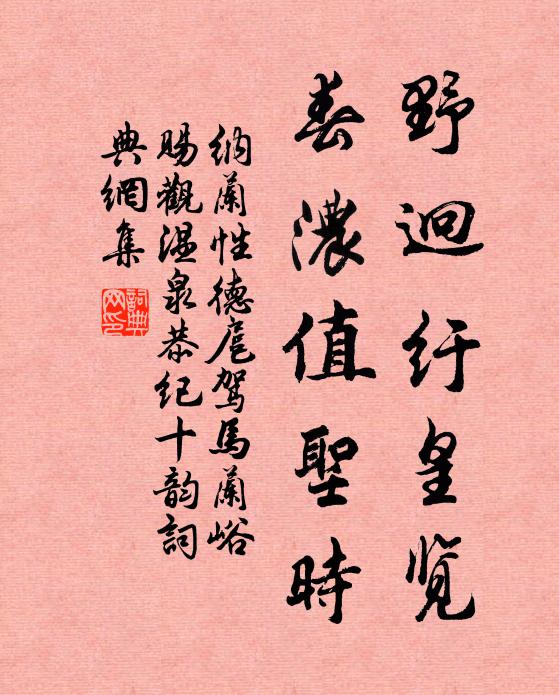 野迥纡皇览
春濃值聖時
納蘭性德扈駕馬蘭峪
賜觀溫泉恭紀十韵詞
典網集
詞典
网印